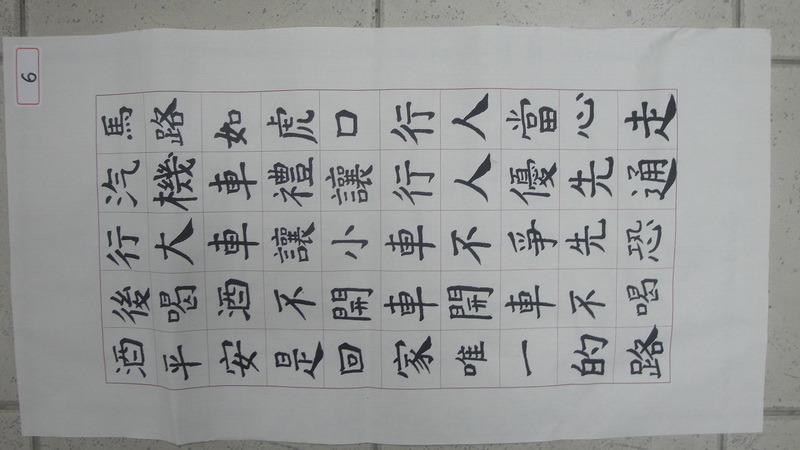 6
馬路如虎口行人當心走
汽機車禮讓行人優先通
行大車讓小車不爭先恐
後喝酒不開車開車不喝
酒平安是回家唯一的路